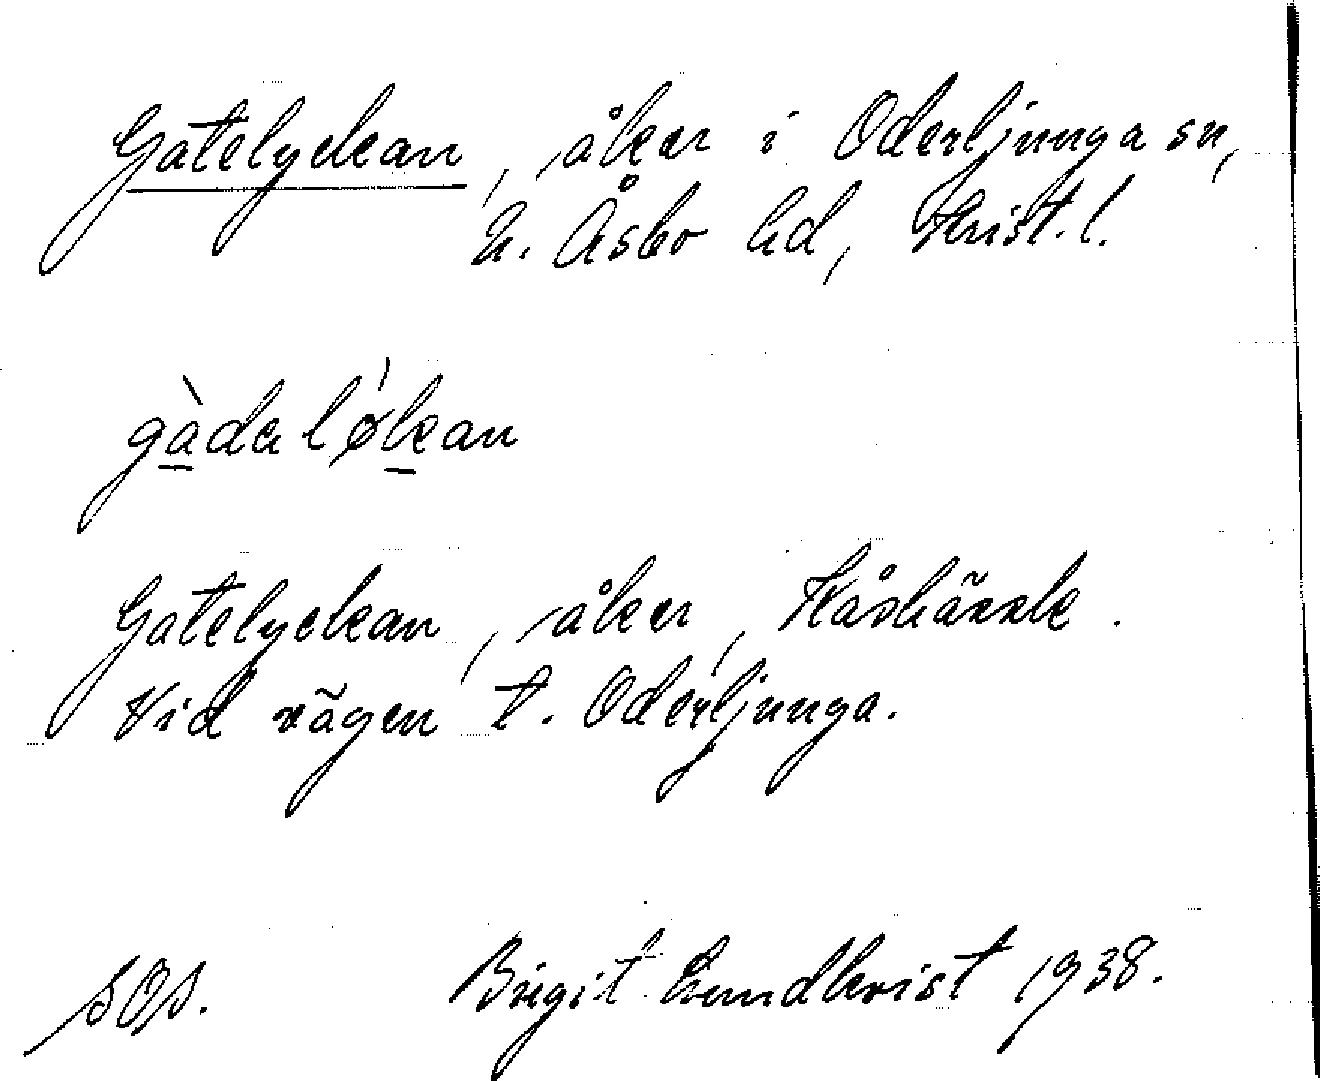 Gatelyckan, åker i Oderljunga sn,
N. Åsbo hd, Krist. l.
gàdaløkan
Gatelyckan, åker,
Vid vägen t. Oderljunga.
SOA. Birgit Lundkvist 1938.